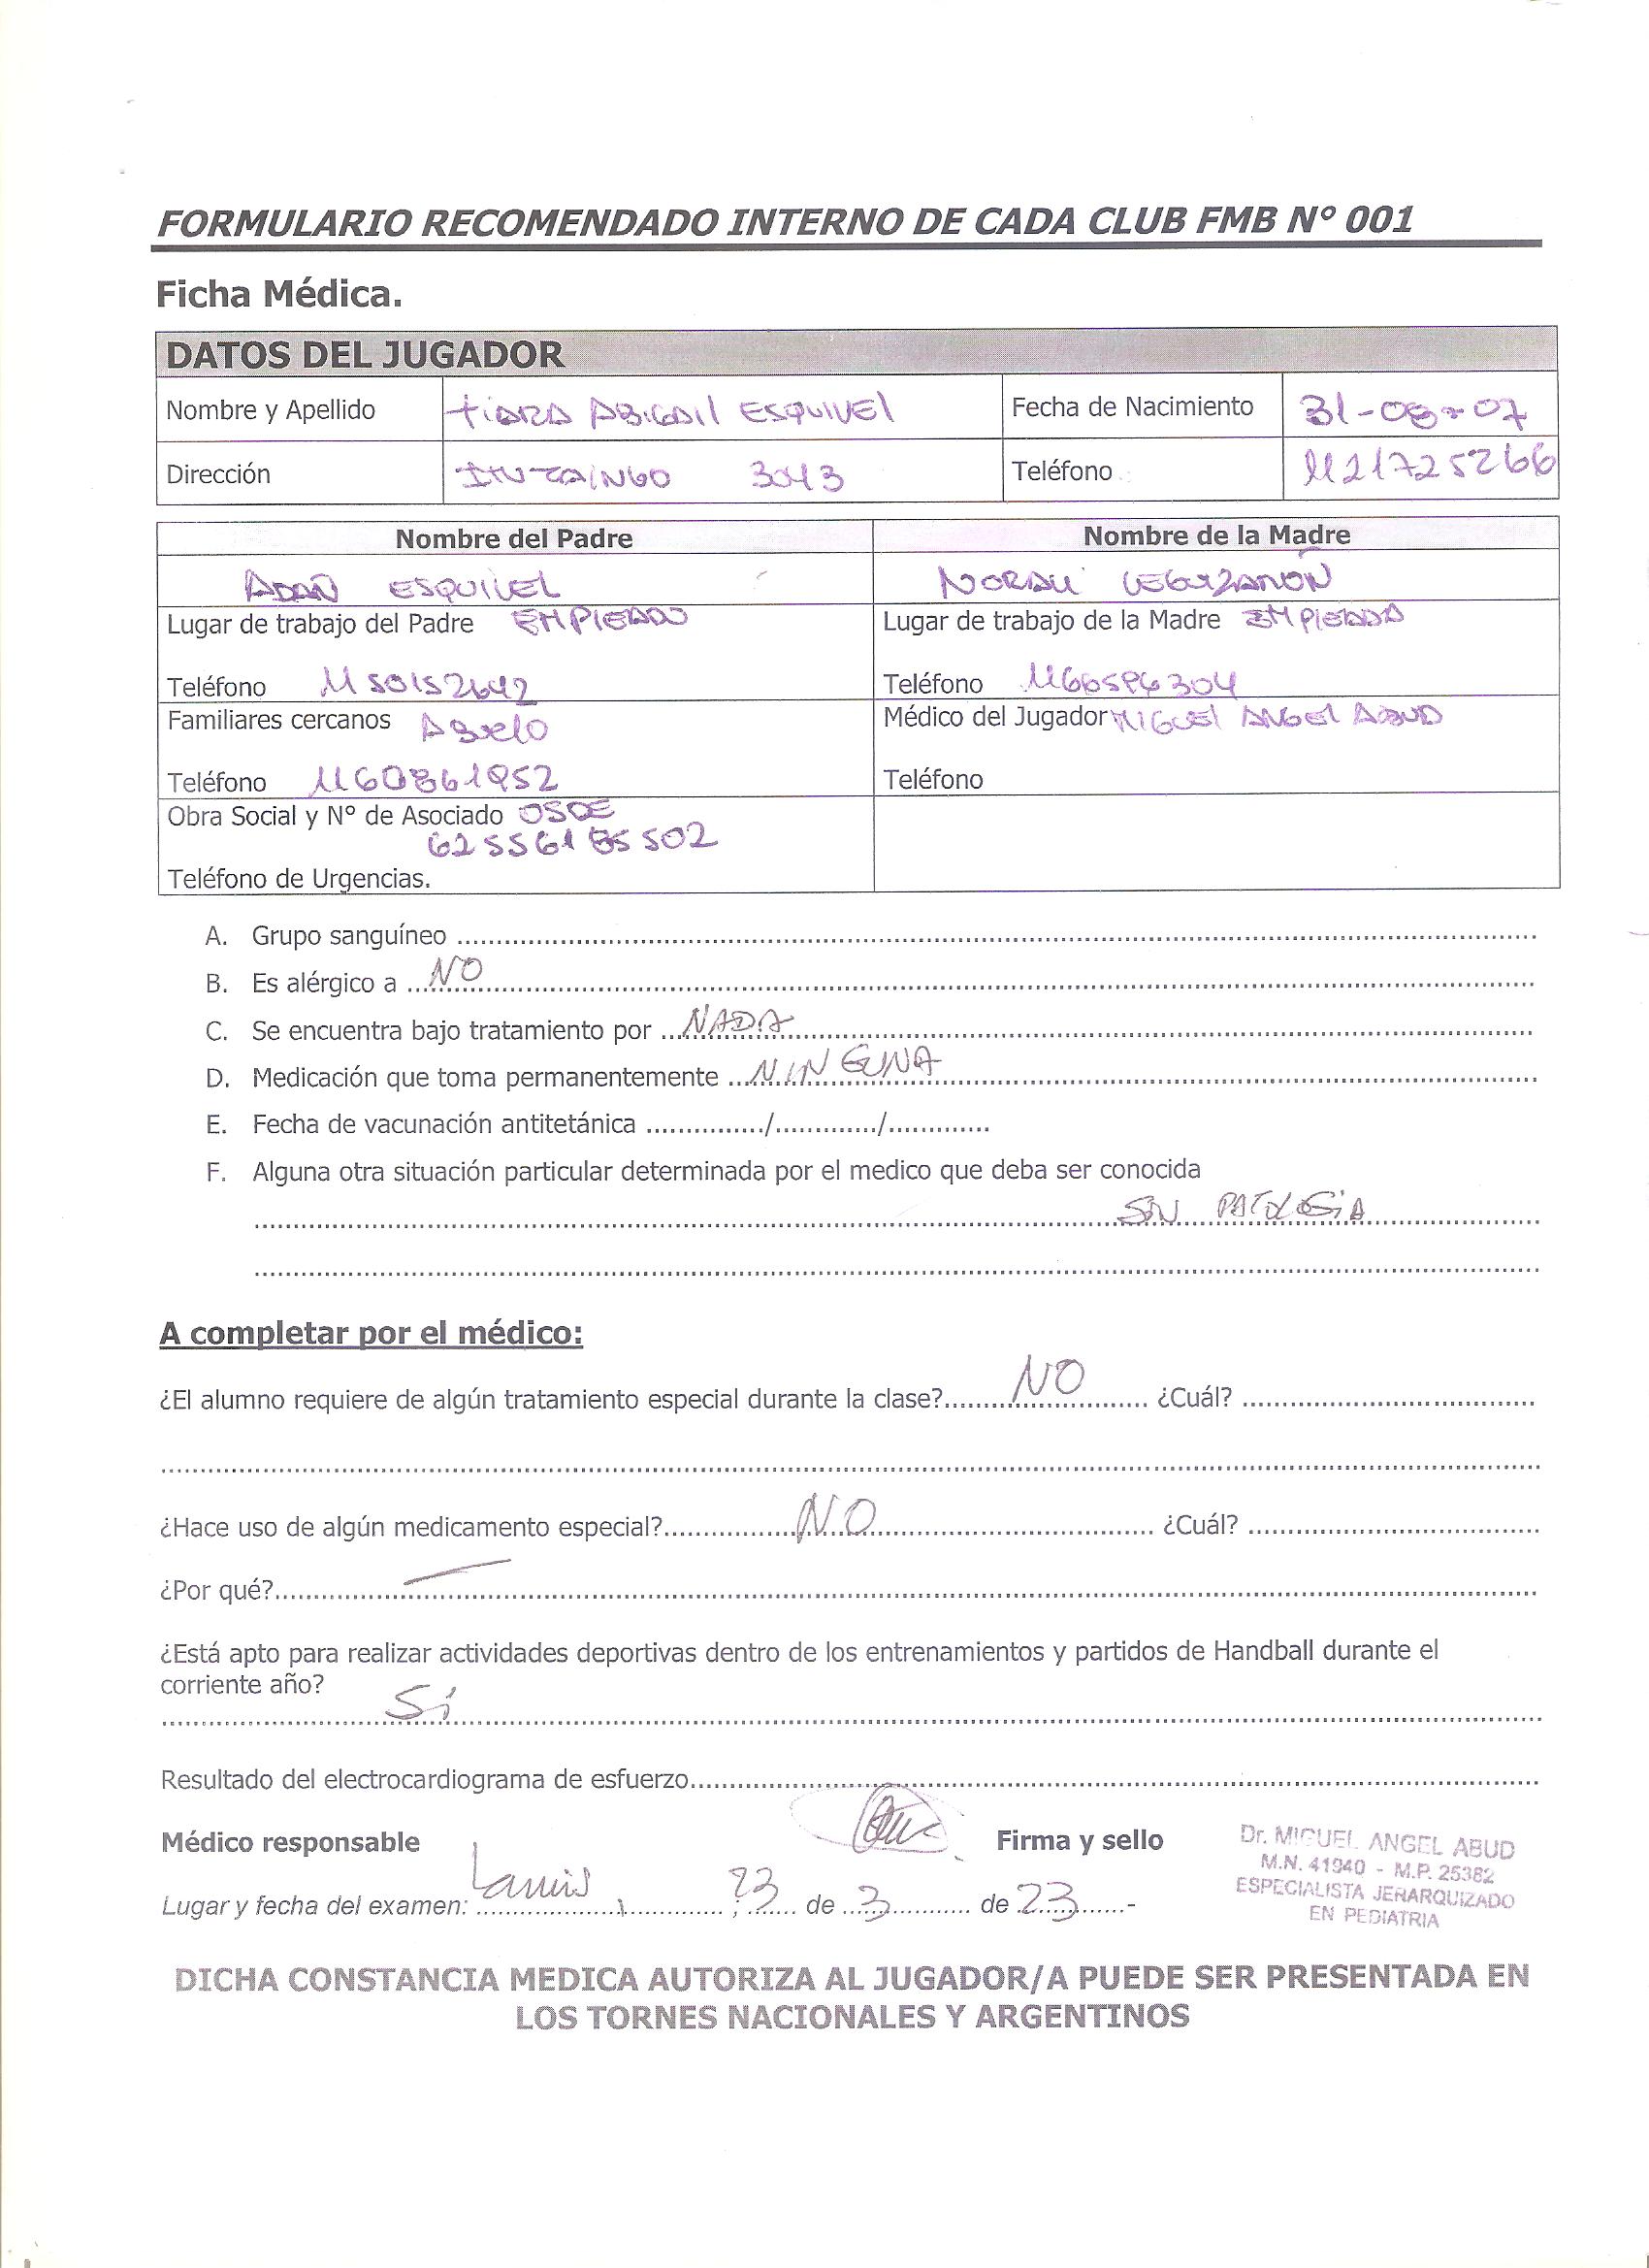 FORMULARIO RECOMENDADO INTERNO DE CADA CLUB FMB N° 001
Ficha Médica.
DATOS DEL JUGADOR
Nombre y Apellido TIARA ABIGAIL ESQUIVEL Fecha de Nacimiento 31-08-07
Dirección 3043 Teléfono 1121725266
Nombre del Padre Nombre de la Madre
ADAN ESQUIVEL
Lugar de trabajo del Padre EMPLEADO Lugar de trabajo de la Madre EMPLEADA
Teléfono 1150152642 Teléfono
Familiares cercanos Abuelo Médico del Jugador MIGUEL ANGEL ABUD
Teléfono 1160861952 Teléfono
Obra Social y N° de Asociado OSDE
Teléfono de Urgencias.
A. Grupo sanguíneo
B. Es alérgico a NO
C. Se encuentra bajo tratamiento por NADA
D. Medicación que toma permanentemente NINGUNA
E. Fecha de vacunación antitetánica ............../............./.............
F. Alguna otra situación particular determinada por el medico que deba ser conocida
SIN PATOLOGIA
A completar por el médico:
¿El alumno requiere de algún tratamiento especial durante la clase? NO ¿Cuál?
¿Hace uso de algún medicamento especial? NO ¿Cuál?
¿Por qué?
¿Está apto para realizar actividades deportivas dentro de los entrenamientos y partidos de Handball durante el
corriente año?
Sí
Resultado del electrocardiograma de esfuerzo
Médico responsable Firma y sello
Dr. MIGUEL ANGEL ABUD
M.N. 41940 - M.P. 25382
ESPECIALISTA JERARQUIZADO
EN PEDIATRIA
Lugar y fecha del examen: Lanús, 23 de 3 de 23.-
DICHA CONSTANCIA MEDICA AUTORIZA AL JUGADOR/A PUEDE SER PRESENTADA EN
LOS TORNES NACIONALES Y ARGENTINOS